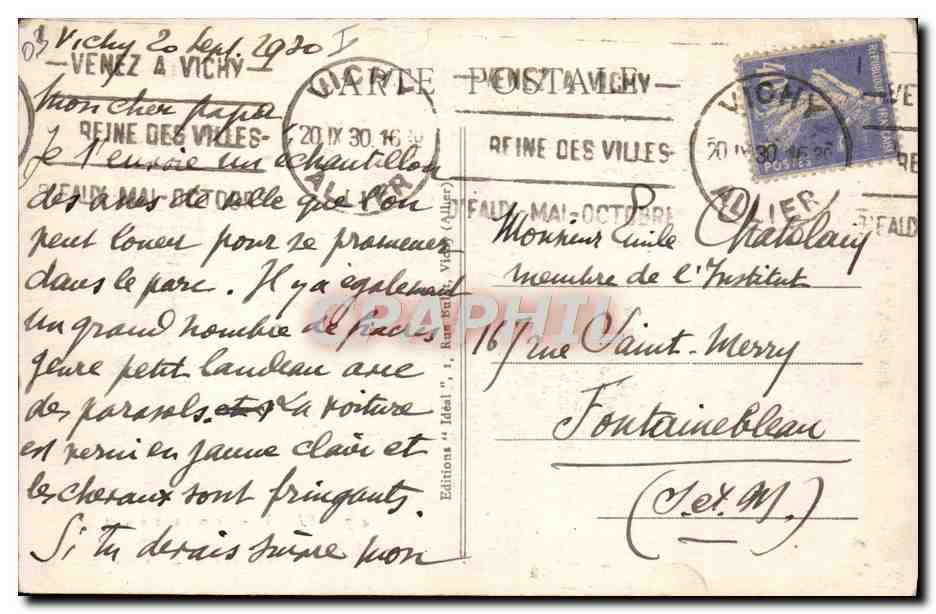 Vichy 20 Sept. 1930 I
VENEZ A VICHY
REINE DES VILLES
D'EAUX MAI-OCTOBRE
VICHY
20 IX 30 16
ALLIER
CARTE POSTALE
Mon cher papa
Je t'envoie un échantillon
des ânes de ville que l'on
peut louer pour se promener
dans le parc. Il y a également
un grand nombre de fiacres
genre petit landeau avec
des parasols. La voiture
est verni en jaune clair et
les chevaux sont fringants.
Si tu devais suivre mon
Editions "Idéal", 1, Rue Vichy (Allier)
VENEZ A VICHY
REINE DES VILLES
D'EAUX MAI-OCTOBRE
VICHY
20 IX 30 16
ALLIER
POSTES
Monsieur Emile
membre de l'Institut
167 rue Saint-Merry
Fontainebleau
(S. et M.)
CPAPHIL